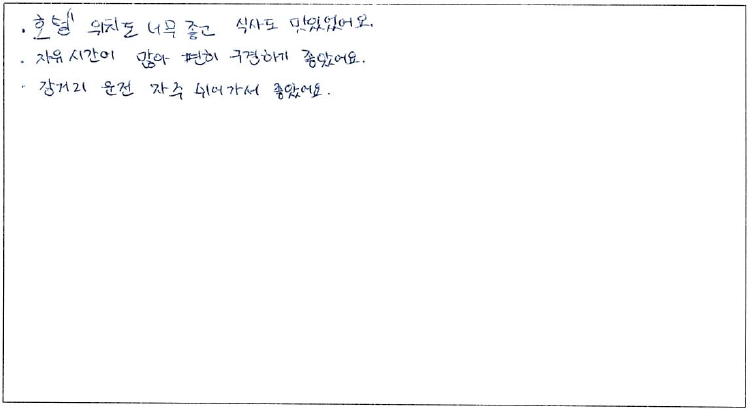 · 호텔 위치도 너무 좋고 식사도 맛있었어요.
· 자유시간이 많아 편히 구경하기 좋았어요.
· 장거리 운전 자주 쉬어가서 좋았어요.